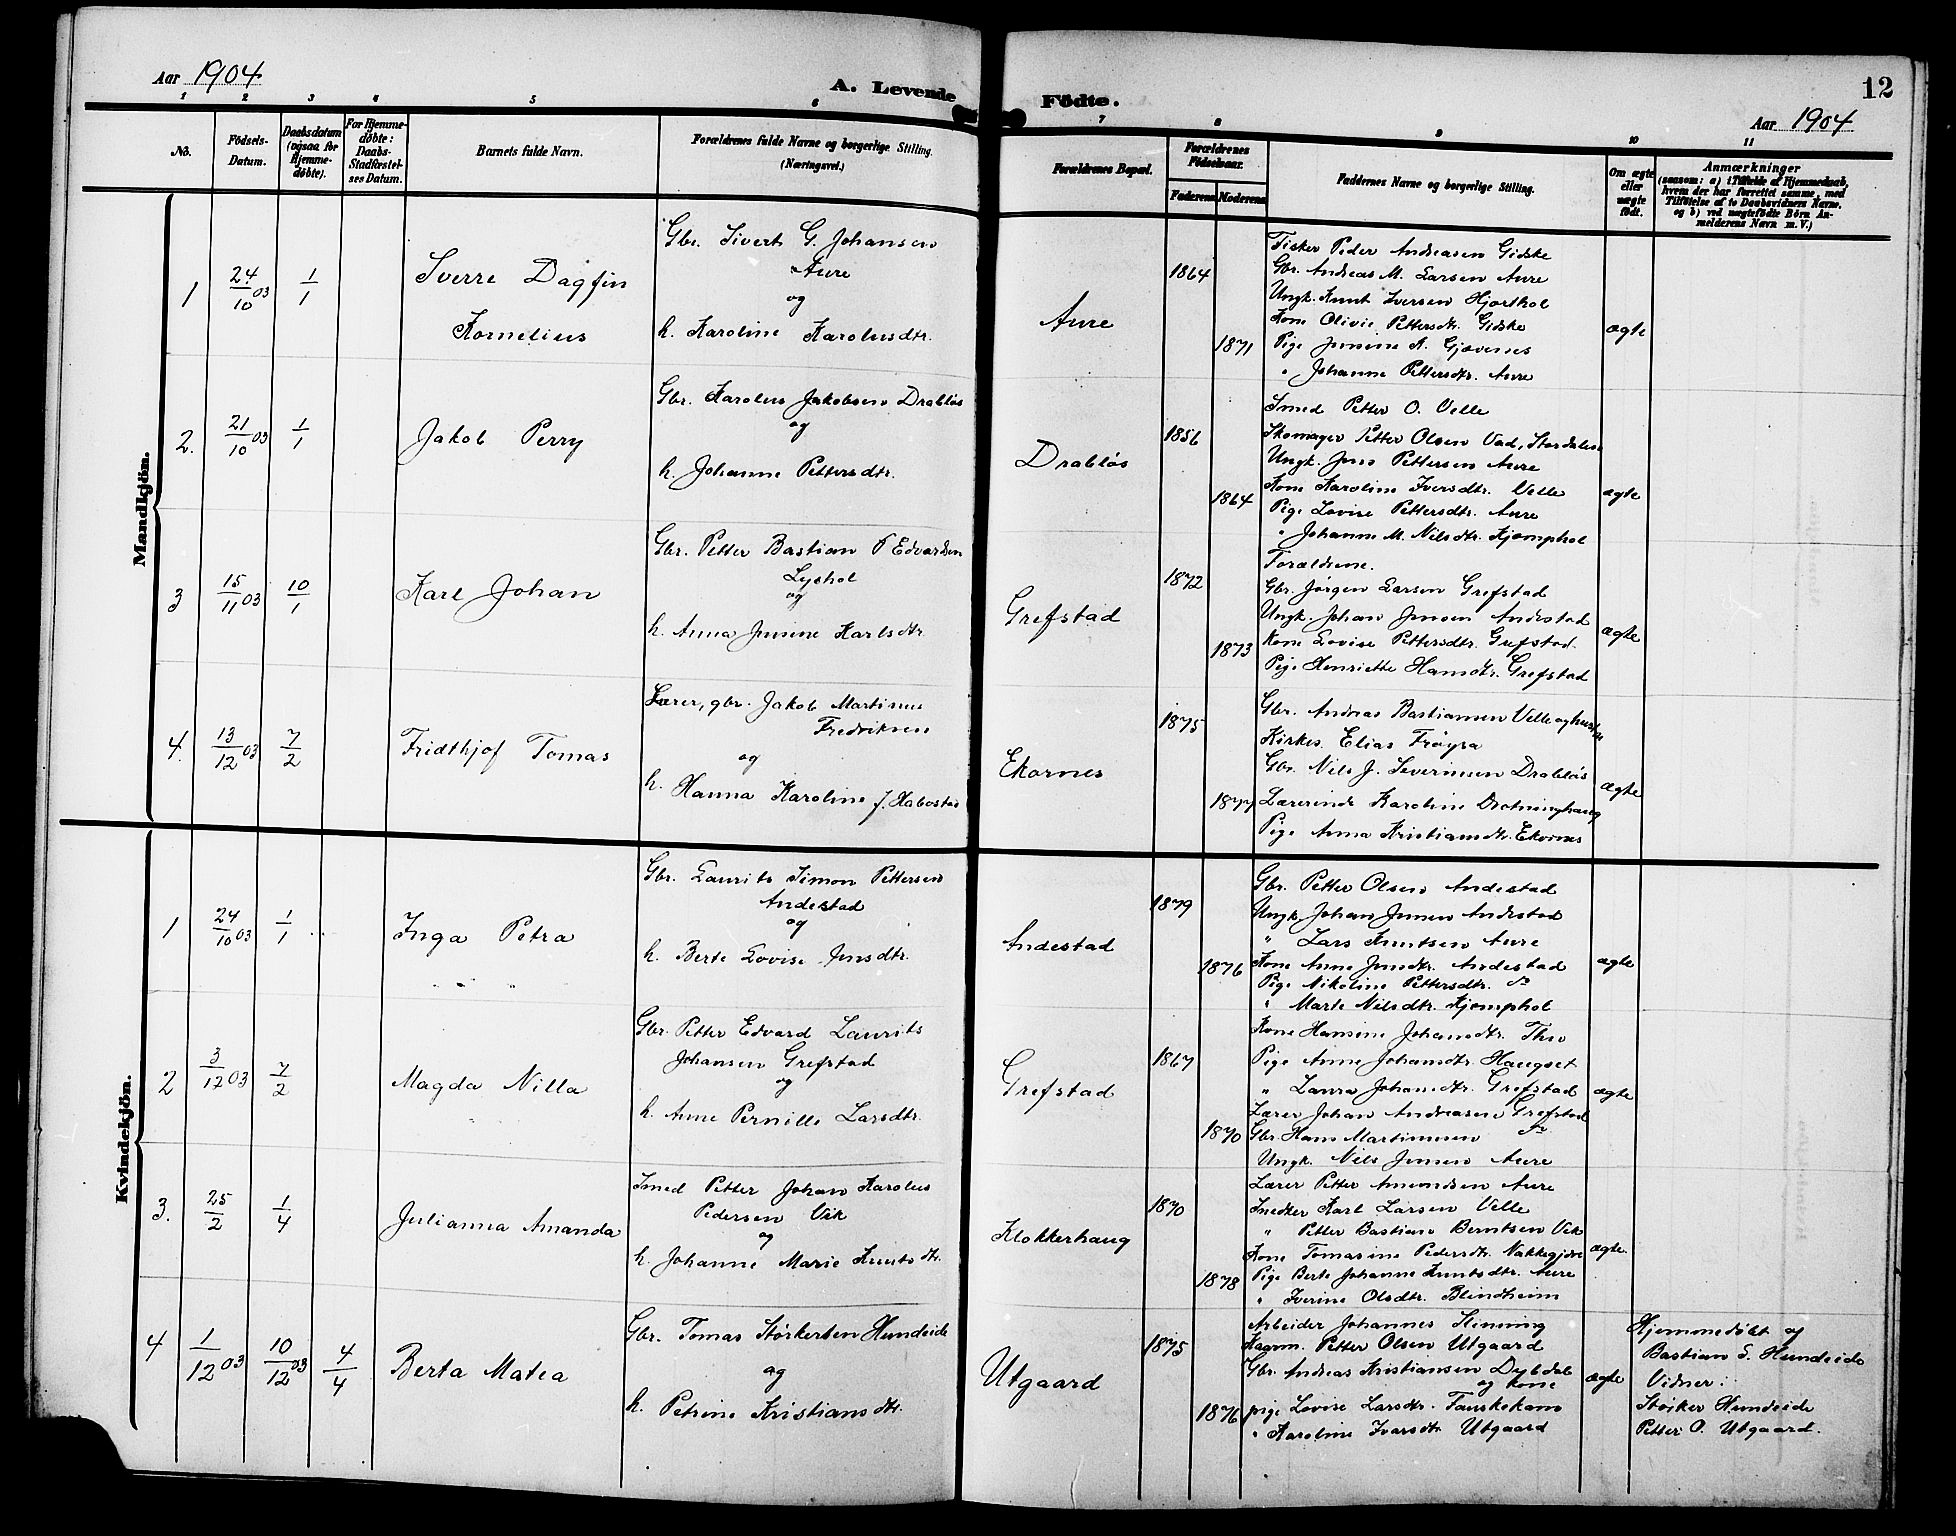 Aar 1904
A. Levende
Födte.
12
Aar 1904
1 2 3 4 5 6 7 8 9 10 11
No.
Födsels-
Datum.
Daabsdatum
(ogsaa for
Hjemme-
døbte).
For Hjemme-
døbte:
Daabs-
Stadfæstel-
ses Datum.
Barnets fulde Navn.
Forældrenes fulde Navne og borgerlige Stilling.
(Næringsvei.)
Forældrenes Bopæl.
Forældrenes
Födselsaar.
Faderens Moderens
Faddernes Navne og borgerlige Stilling.
Om ægte
eller
uægte
födt.
Anmærkninger
(saasom: a) i Tilfælde af Hjemmedaab,
hvem der har forrettet samme, med
Tilföielse af to Daabsvidners Navne,
og b) ved uægtefödte Börn An-
melderens Navn m. V.)
Mandkjön.
1
24/10 03
1/1
Sverre Dagfin
Kornelius
Gbr. Sivert G. Johansen
Aure
og
h. Karoline Karolusdtr.
Aure
1864
1871
Fisker Peder Andreasen Gidske
Gbr. Andreas M. Larsen Aure
Ungk. Knut Iversen Hjorthol
Kone Olivie Pettersdtr. Gidske
Pige Jensine K. Gjævenes
" Johanne Pettersdtr. Aure
ægte
2.
21/10 03
1/1
Jakob Perry
Gbr. Karolus Jakobsen Drabløs
og
h. Johanne Pettersdtr.
Drabløs
1856
1864
Smed Petter O. Velle
Skomager Petter Olsen Vad, Stordalen
Ungk. Jens Pettersen Aure
Kone Karoline Iversdtr. Velle
Pige Lovise Pettersdtr. Aure
" Johanne M. Nilsdtr. Kjemphol
ægte
3
15/11 03
10/1
Karl Johan
Gbr. Petter Bastian P Edvardsen
Lyshol
og
h. Anna Jensine Karlsdtr.
Grefstad
1872
1873
Forældrene.
Gbr. Jørgen Larsen Grefstad
Ungk. Johan Jensen Andestad
Kone Lovise Pettersdtr. Grefstad.
Pige Henriette Hansdtr. Grefstad
ægte
4.
13/12 03
7/2
Fridthjof Tomas
Lærer, gbr. Jakob Martinus
Fredriksen
og
h. Hanna Karoline J. Habostad
Ekornes
1875
1877
Gbr. Andreas Bastiansen Velle og hustru
Kirkes. Elias Frøysa
Gbr. Nils J. Severinsen Drabløs
Lærerinde Karoline Drotninghaug
Pige Anna Kristiansdtr. Ekornes
ægte
Kvindekjön.
1
24/10 03
1/1
Inga Petra
Gbr. Laurits Simon Pettersen
Andestad
og
h. Berte Lovise Jensdtr.
Andestad
1879
1876
Gbr. Petter Olsen Andestad
Ungk. Johan Jensen Andestad
" Lars Knutsen Aure
Kone Anne Jensdtr. Andestad
Pige Nikoline Pettersdtr. do
" Marte Nilsdtr. Kjemphol
ægte
2
3/12 03
7/2
Magda Nilla
Gbr. Petter Edvard Laurits
Johansen Grefstad
og
h. Anne Pernille Larsdtr.
Grefstad
1867
1870
Kone Hansine Johansdtr. Thu
Pige Anne Johansdtr. Haugset
" Laura Johansdtr. Grefstad
Lærer Johan Andreasen Grefstad
Gbr. Hans Martinusen do
Ungk. Nils Jensen Aure
ægte
3.
25/2
1/4
Julianna Amanda
Smed Petter Johan Karolus
Pedersen Vik
og
h. Johanne Marie Knutsdtr.
Klokkerhaug
1870
1878
Lærer Petter Amundsen Aure
Snedker Karl Larsen Velle
" Petter Bastian Berntsen Vik
Kone Tomasine Pedersdtr. Nakkegjære
Pige Berte Johanne Knutsdtr. Aure
" Iverine Olsdtr. Blindheim
ægte.
4
1/12 03
10/12 03
4/4
Berta Matea
Gbr. Tomas Størkersen Hundeide
og
h. Petrine Kristiansdtr.
Utgaard
1875
1876
Arbeider Johannes Henning
Kagrm. Petter Olsen Utgaard
Gbr. Andreas Kristiansen Dybdal
og kone
pige Lovise Larsdtr. Fauskekann
" Karoline Ivarsdtr Utgaard
ægte
Hjemmedøbt af
Bastian S. Hundeide
Vidner:
Støiker Hundeide
Petter O. Utgaard.